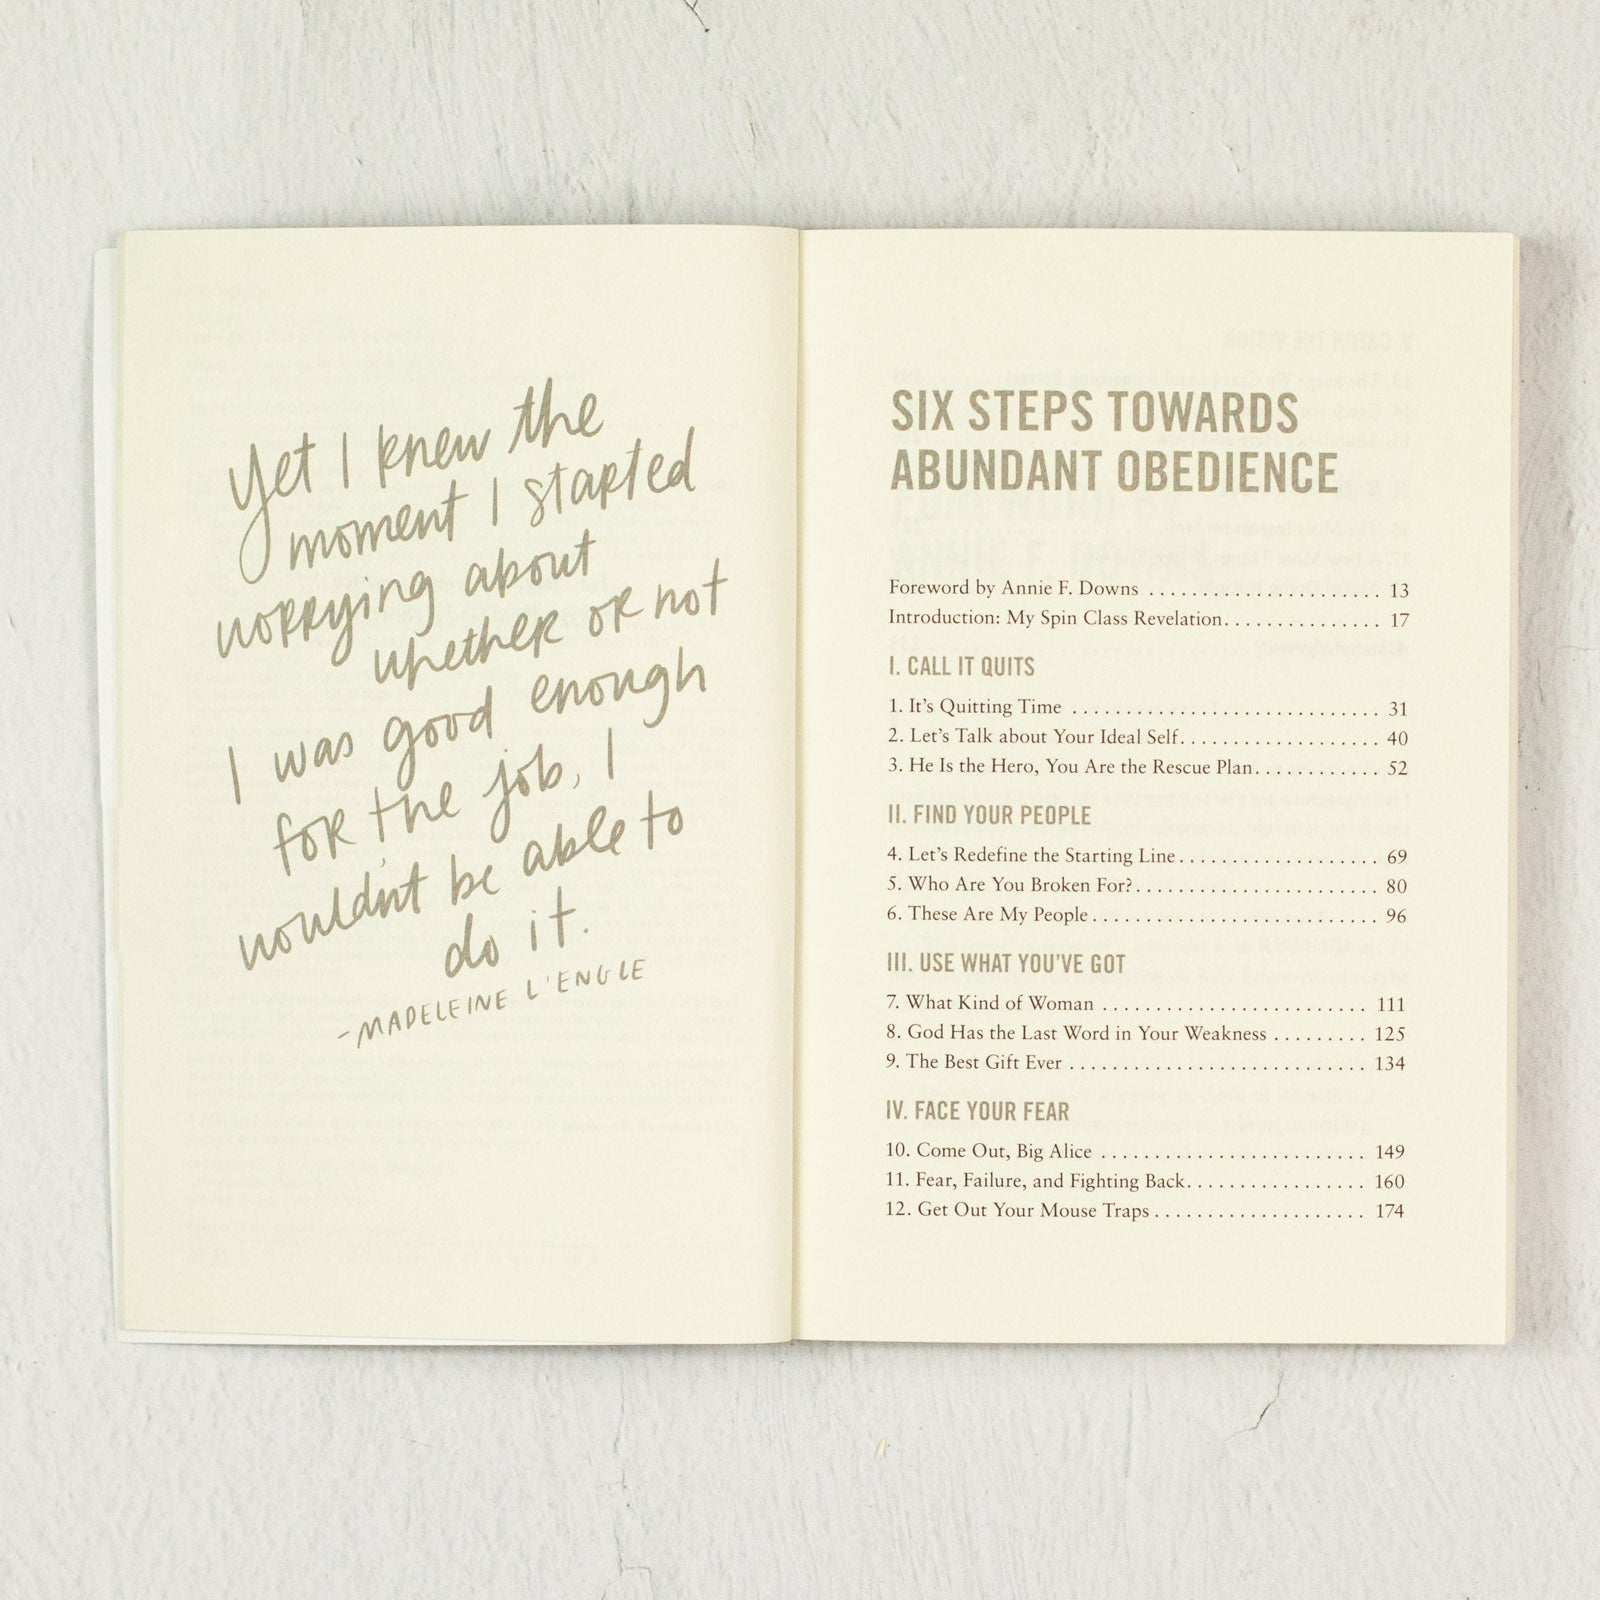 Yet I knew the
moment I started
worrying about
whether or not
I was good enough
for the job, I
wouldn't be able to
do it.
-MADELEINE L'ENGLE
SIX STEPS TOWARDS
ABUNDANT OBEDIENCE
Foreword by Annie F. Downs . . . . . . . . . . . . . . . . . . . . . . 13
Introduction: My Spin Class Revelation. . . . . . . . . . . . . . . 17
I. CALL IT QUITS
1. It's Quitting Time . . . . . . . . . . . . . . . . . . . . . . . . . . . . . 31
2. Let's Talk about Your Ideal Self. . . . . . . . . . . . . . . . . . . 40
3. He Is the Hero, You Are the Rescue Plan. . . . . . . . . . . . 52
II. FIND YOUR PEOPLE
4. Let's Redefine the Starting Line. . . . . . . . . . . . . . . . . . . 69
5. Who Are You Broken For?. . . . . . . . . . . . . . . . . . . . . . . 80
6. These Are My People. . . . . . . . . . . . . . . . . . . . . . . . . . . 96
III. USE WHAT YOU'VE GOT
7. What Kind of Woman . . . . . . . . . . . . . . . . . . . . . . . . . 111
8. God Has the Last Word in Your Weakness . . . . . . . . . 125
9. The Best Gift Ever . . . . . . . . . . . . . . . . . . . . . . . . . . . . 134
IV. FACE YOUR FEAR
10. Come Out, Big Alice . . . . . . . . . . . . . . . . . . . . . . . . . 149
11. Fear, Failure, and Fighting Back. . . . . . . . . . . . . . . . . 160
12. Get Out Your Mouse Traps . . . . . . . . . . . . . . . . . . . . 174